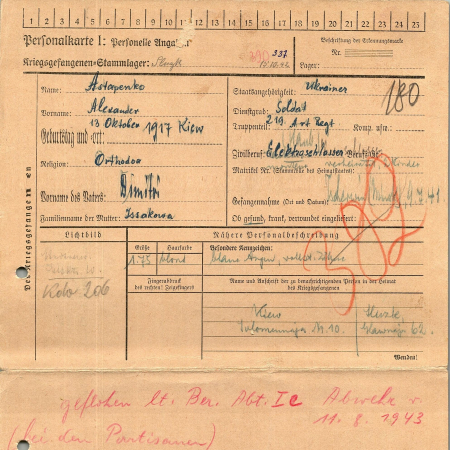 1 2 3 4 5 6 7 8 9 10 11 12 13 14 15 16 17 18 19 20 21 22 23
Personalkarte I: Personelle Angaben
Beschriftung der Erkennungsmarke
Kriegsgefangenen-Stammlager:
337
Nr.
Lager:
Des Kriegsgefangenen
Name: Astapenko
Vorname: Alexander
Geburtstag und -ort: 13 Oktober 1917 Kiew
Religion: Orthodox
Vorname des Vaters: Dimitri
Familienname der Mutter: Issakowa
Staatsangehörigkeit: Ukrainer
180
Dienstgrad: Soldat
Truppenteil: 219. Art Regt Komp. usw.:
Zivilberuf: Elektroschlosser Berufsgr.:
Matrikel Nr. (Stammrolle des Heimatstaates):
Gefangennahme (Ort und Datum): 9.7.41.
Ob gesund, krank, verwundet eingeliefert:
302
Lichtbild
Nähere Personalbeschreibung
Größe
Haarfarbe
Besondere Kennzeichen:
1.73
blond
blaue Augen,
Kdo 206
Fingerabdruck
des rechten! Zeigefingers
Name und Anschrift der zu benachrichtigenden Person in der Heimat
des Kriegsgefangenen
Kiew
N. 10.
62.
Wenden!
geflohen lt. Ber. Abt. Ic Abwehr v.
11. 8. 1943
(bei den Partisanen)